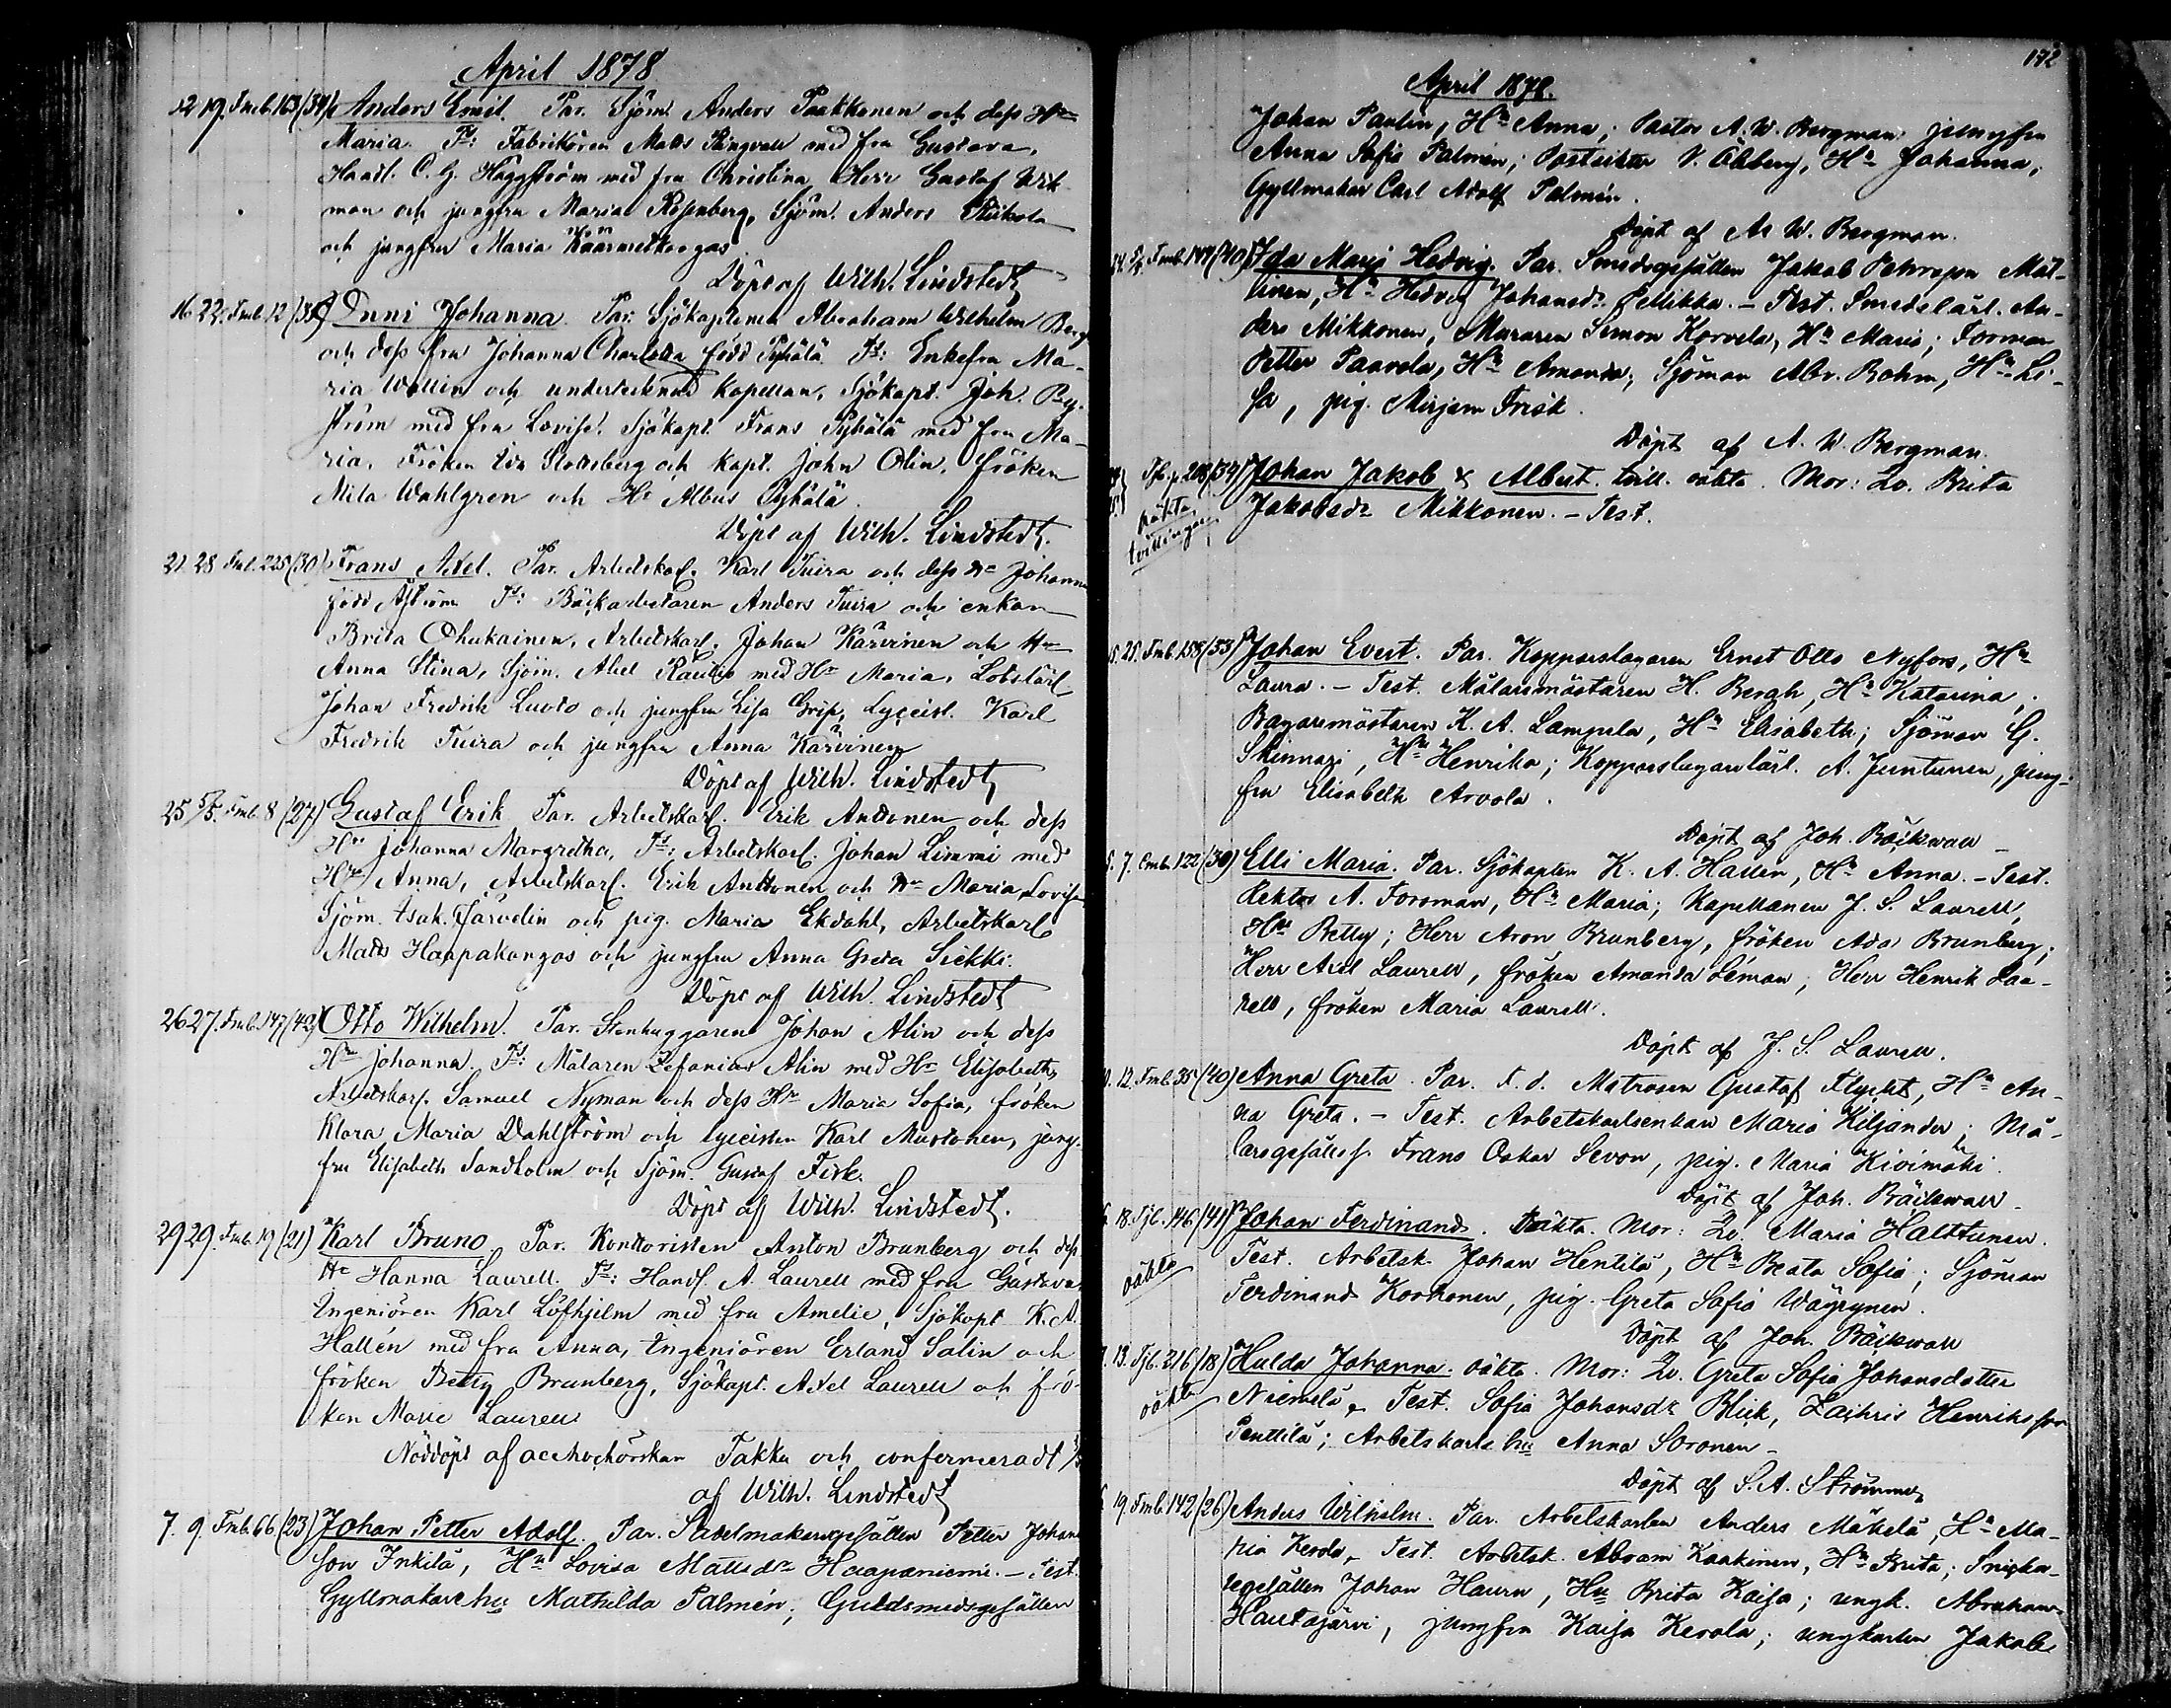 April 1878
12 19. Fmb. 163 (34) Anders Emil. Par. Sjöm. Anders Paakkonen och dess Hu
Maria. Ts: Fabrikören Matts Ringvall med fru Gustava,
Handl. C. G. Häggström med fru Christina, Herr Gustaf Wik-
man och jungfru Maria Rosenberg, Sjöm. Anders
och jungfru Maria Käärmetkangas
Döpt af Wilh. Lindstedt
16. 22. Fmb. 12 (35) Enni Johanna. Par: Sjökaptenen Abraham Wilhelm Berg
och dess fru Johanna Charlotta född Pyhälä. Ts: Enkefru Ma-
ria Wallin och undertecknad Kapellan, Sjökapt. Joh. By-
ström med fru Lovisa, Sjökapt. Frans Pyhälä med fru Ma-
ria, Fröken Ida Slottsberg och Kapt. John Olin, fröken
Mila Wahlgren och Hr Albus Pyhälä.
Döpt af Wilh. Lindstedt.
21. 28 Fmb. 225 (30) Frans Axel. Par. Arbetskarl. Karl Tuira och dess Hu Johanna
född Åström Ts: Bäckarbetaren Anders Tuira och enkan
Brita Ohukainen, Arbetskarl. Johan Karvinen och Hu
Anna Stina, Sjöm. Abel Rautio med Hu Maria, Lotslärl.
Johan Fredrik Luoto och jungfru Lisa Grip, Lyceist. Karl
Fredrik Tuira och jungfru Anna Karvinen
Döpt af Wilh. Lindstedt
25 5/5. Fmb. 8 (27) Gustaf Erik. Par. Arbetskarl. Erik Anttonen och dess
Hu Johanna Margretha, Ts: Arbetskarl. Johan Limmi med
Hu Anna, Arbetskarl. Erik Anttonen och Hu Maria Lovisa
Sjöm. Isak Järvelin och pig. Maria Ekdahl, Arbetskarl
Matts Haapakangas och jungfru Anna Greta Siekki.
Döpt af Wilh. Lindstedt
26 27. Fmb. 147 (42) Otto Wilhelm. Par. Stenhuggaren Johan Alin och dess
Hu Johanna. Ts: Målaren Zefanias Alin med Hu Elisabeth,
Arbetskarl. Samuel Nyman och dess Hu Maria Sofia, fröken
Klara Maria Dahlström och lyceisten Karl Mustonen, jung-
fru Elisabeth Sandholm och Sjöm. Gustaf Fisk.
Döpt af Wilh. Lindstedt.
29 29. Fmb. 19 (21) Karl Bruno. Par. Kontoristen Anton Brunberg och dess
Hu Hanna Laurell. Ts: Handl. A. Laurell med fru Gustava,
Ingeniören Karl Löfhjelm med fru Amelie, Sjökapt K. A.
Hallén med fru Anna, Ingeniören Erland Salin och
fröken Betty Brunberg, Sjökapt. Axel Laurell och frö-
ken Marie Laurell
Nöddöpt af acchochörskan Takka och confermeradt
af Wilh. Lindstedt
7. 9. Fmb. 66 (23) Johan Petter Adolf. Par. Sadelmakaregesällen Petter Johans
son Inkilä, Hu Lovisa Mattsdr Haapaniemi. – Test.
Gyllmakare hu Mathilda Palmén; Guldsmedsgesällen
172
April 1878.
Johan Paulin, Hu Anna; Pastor A. W. Bergman jungfru
Anna Sofia Palmén; V. Öhberg, Hu Johanna;
Gyllmakar Carl Adolf Palmén.
Döpt af A. W. Bergman.
Fmb. 147 (40) Ida Maria Hedvig. Par. Smedsgesällen Jakob Pehrsson Mat-
tinen, Hu Hedvig Johansdr Pellikka. – Test. Smedslärl. An-
ders Mikkonen, Muraren Simon Korvela, Hu Maria; Forman
Petter Paavola, Hu Amanda; Sjöman Abr. Bohm, Hu Li-
sa, pig. Mirjam Frisk.
Döpt af A. W. Bergman.
208 (34) Johan Jakob & Albert. tvill. oäkta. Mor: Lö. Brita
oäkta tvillingar
Jakobsdr Mikkonen. – Test.
5. 25. Fmb. 158 (33) Johan Evert. Par. Kopparslagaren Ernst Otto Nyfors, Hu
Laura. – Test. Målaremästaren H. Bergh, Hu Katarina;
Bagaremästaren K. A. Lampela, Hu Elisabeth; Sjöman G.
Skinnari, Hu Henrika; Kopparslagarelärl. A. Juntunen, jung-
fru Elisabeth Arvola.
Döpt af Joh. Bäckwall
5. 7. Fmb. 122 (30) Elli Maria. Par. Sjökapten K. A. Hallen, Hu Anna. – Test.
Rektor A. Forsman, Hu Maria; Kapellanen J. S. Laurell,
Hu Betty; Herr Aron Brunberg, fröken Ada Brunberg;
Herr Axel Laurell, fröken Amanda Léman; Herr Henrik Lau-
rell, fröken Maria Laurell.
Döpt af J. S. Laurell.
12. Fmb. 35 (40) Anna Greta. Par. f. d. Matrosen Gustaf Flyckt, Hu An-
na Greta. – Test. Arbetskarlsenkan Maria Kiljander; Må-
laregesällen Frans Oskar Sevon, pig. Maria Kivimäki.
Döpt af Joh. Bäckwall
18. Fjb. 146 (41) Johan Ferdinand. Oäkta. Mor: Lö. Maria Halttunen.
oäkta
Test. Arbetsk. Johan Hentilä, Hu Beata Sofia; Sjöman
Ferdinand Korhonen, pig. Greta Sofia Wäyrynen.
Döpt af Joh. Bäckwall
13. Fjb. 216 (18) Hulda Johanna. oäkta. Mor: Lö. Greta Sofia Johansdotter
oäkta
Niemelä. Test. Sofia Johansdr Blick, Zachris Henriksson
Penttilä; Arbetskarls hu Anna Soronen –
Döpt af S. A. Strömmer
19. Fmb. 142 (26) Anders Wilhelm. Par. Arbetskarlen Anders Mäkelä, Hu Ma-
ria Kerola. Test. Arbetsk. Abram Kaakinen, Hu Brita; Snicka-
regesällen Johan Hauru, Hu Brita Kaisa; ungk. Abraham
Hautajärvi, jungfru Kaisa Kerola; ungkarlen Jakob